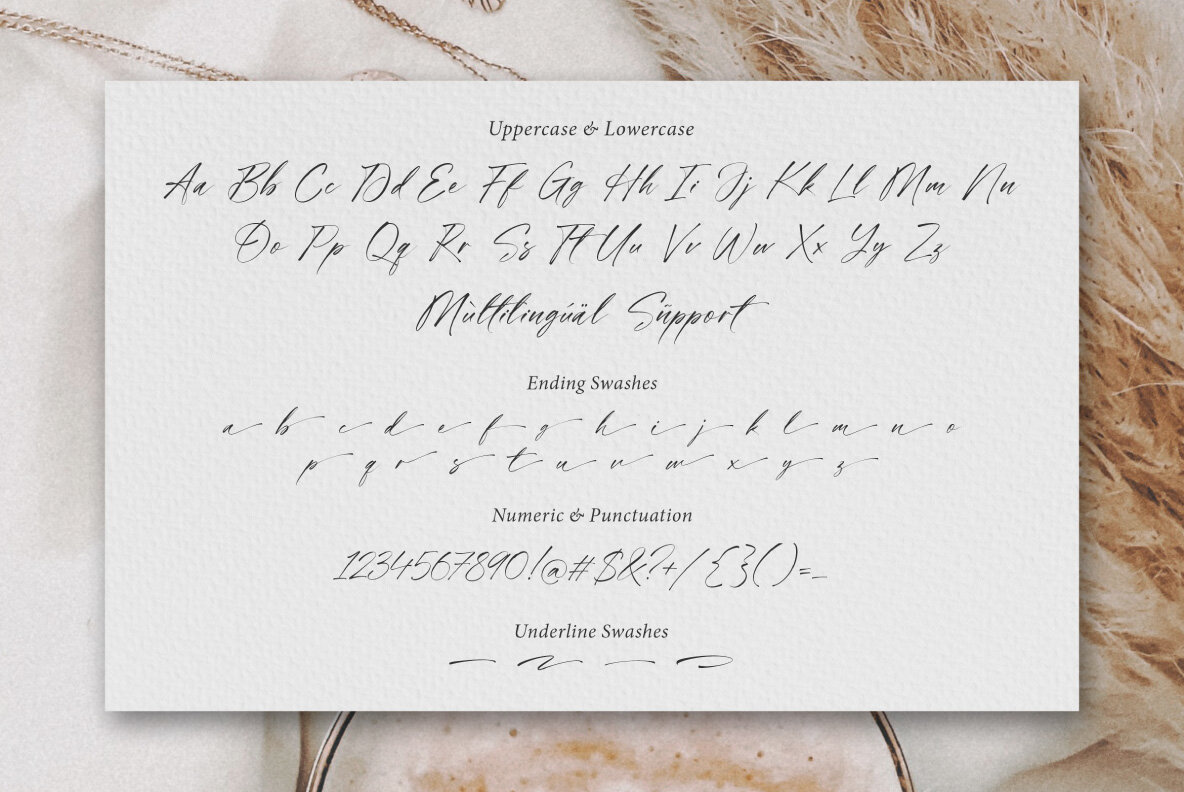 Uppercase & Lowercase
Aa Bb Cc Dd Ee Ff Gg Hh Ii Jj Kk Ll Mm Nn
Oo Pp Qq Rr Ss Tt Uu Vv Ww Xx Yy Zz
Mùltilingúäl Süpport
Ending Swashes
a b c d e f g h i j k l m n o
p q r s t u v w x y z
Numeric & Punctuation
1234567890!@#$&?+/{}()=_
Underline Swashes